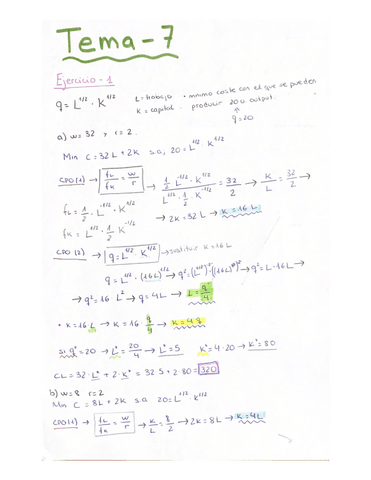 Tema-7
Ejercicio-1
q = L^1/2 · K^1/2
L = trabajo
K = capital
· mínimo coste con el que se pueden
producir 20 u. output.
q=20
a) w=32 y r=2.
Min C = 32L + 2K s.a, 20 = L^1/2 · K^1/2
CPO(1) → fL/fK = w/r → (1/2 L^-1/2 · K^1/2)/(L^1/2 · 1/2 K^-1/2) = 32/2 → K/L = 32/2 →
→ 2K = 32L → K=16L
fL = 1/2 · L^-1/2 · K^1/2
fK = L^1/2 · 1/2 K^-1/2
CPO (2) → q = L^1/2 · K^1/2 → sustituir K=16L
q = L^1/2 · (16L)^1/2 → q² = (L^1/2)² · ((16L)^1/2)² → q² = L · 16L →
→ q² = 16 L² → q = 4L → L = q/4
· K=16L → K = 16 · q/4 → K = 4q
si q°=20 → L* = 20/4 → L* = 5 K* = 4·20 → K* = 80
CL = 32·L* + 2·K* = 32·5 + 2·80 = 320
b) w=8 r=2
Min C = 8L + 2K s.a 20 = L^1/2 · K^1/2
CPO(1) → fL/fK = w/r → K/L = 8/2 → 2K = 8L → K=4L